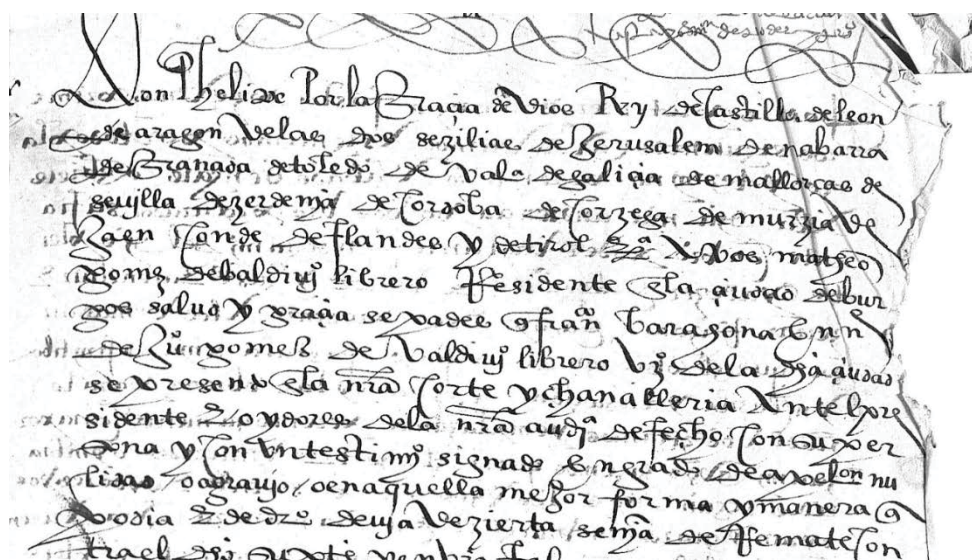 Don Phelipe Por la Graçia de Dios Rey de Castilla de leon
de aragon de las dos sezilias de Jerusalem de nabarra
de Granada de toledo de Vala de galiçia de mallorcas de
sevylla de zerdeña de Cordoba de Corzega de murzia de
Jaen Conde de flandes y de tirol A Vos matheo
gomz de baldivi librero Residente en la çiudad de bur
gos salud y graçia sepades q fran barasona en n
de Ju gomes de Valdivi librero Vz de la dha çiudad
se presento en la nra Corte y chanalleria Ante el pre
sidente e oydores de la nra audia de fecho Con su per
sona y Con Un testimi signado en grado de apelon nu
lidad o agravio o en aquella mejor forma y manera q
podia e de dro devia de zierta sena de Remate Con
tra el dho su pte